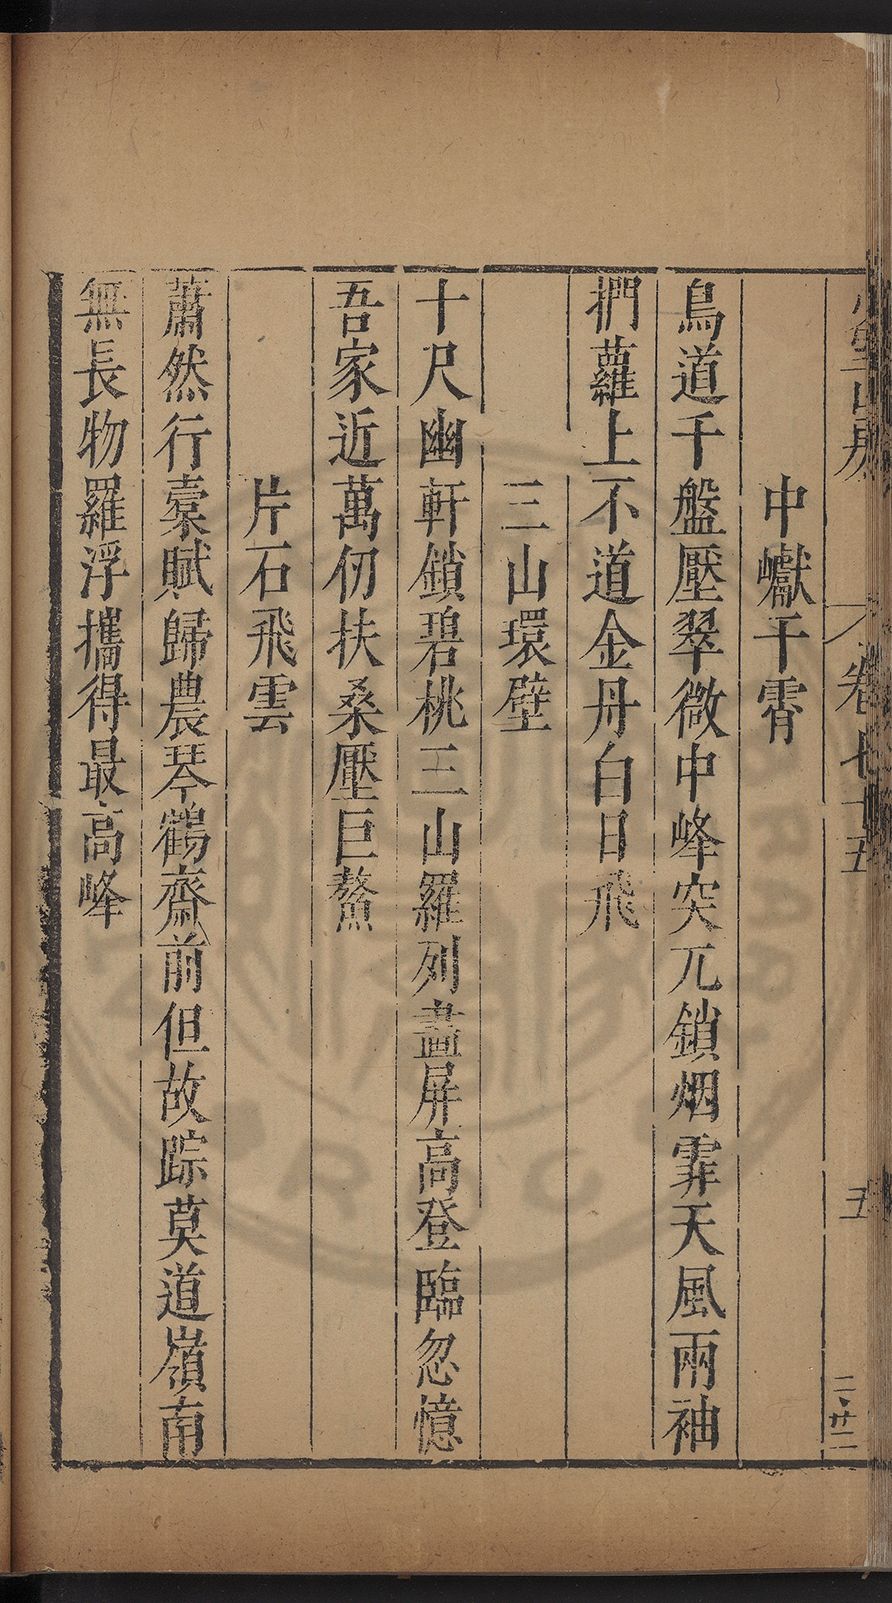 卷七十五
五
中巘干霄
鳥道千盤壓翠微中峰突兀鎖烟霏天風兩袖
捫蘿上不道金丹白日飛
三山環壁
十尺幽軒鎖碧桃三山羅列畫屏高登臨忽憶
吾家近萬仞扶桑壓巨鰲
片石飛雲
蕭然行橐賦歸農琴鶴齋前但故踪莫道嶺南
無長物羅浮攜得最高峰